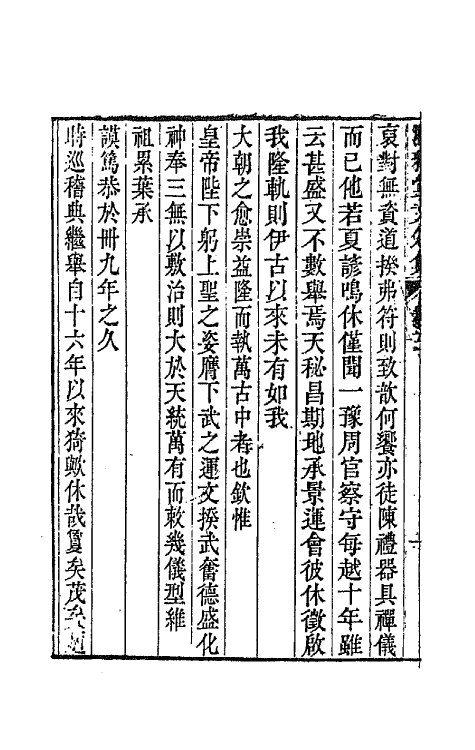 裒對無資道揆弗符則致歆何饗亦徒陳禮器具禪儀
而已他若夏諺鳴休僅聞一豫周官察守每越十年雖
云甚盛又不數舉焉天秘昌期地承景運會彼休徵啟
我隆軌則伊古以來未有如我
大朝之愈崇益隆而執萬古中者也欽惟
皇帝陛下躬上聖之姿膺下武之運文揆武奮德盛化
神奉三無以敷治則大於天統萬有而敕幾儀型維
祖累葉承
謨篤恭於卌九年之久
時巡稽典繼舉自十六年以來猗歟休哉夐矣茂矣